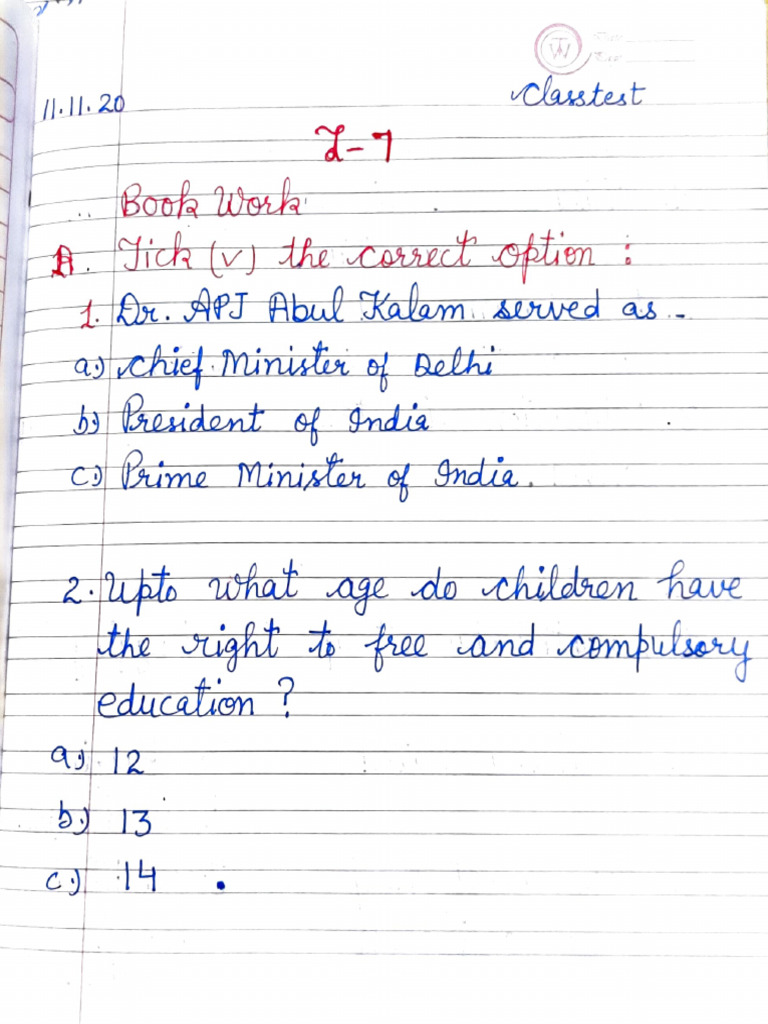 11.11.20
Classtest
L-7
Book Work
A. Tick (v) the correct option :
1. Dr. APJ Abul Kalam served as -
a.) Chief Minister of Delhi
b.) President of India
c.) Prime Minister of India.
2. Upto what age do children have
the right to free and compulsory
education ?
a.) 12
b.) 13
c.) 14 .